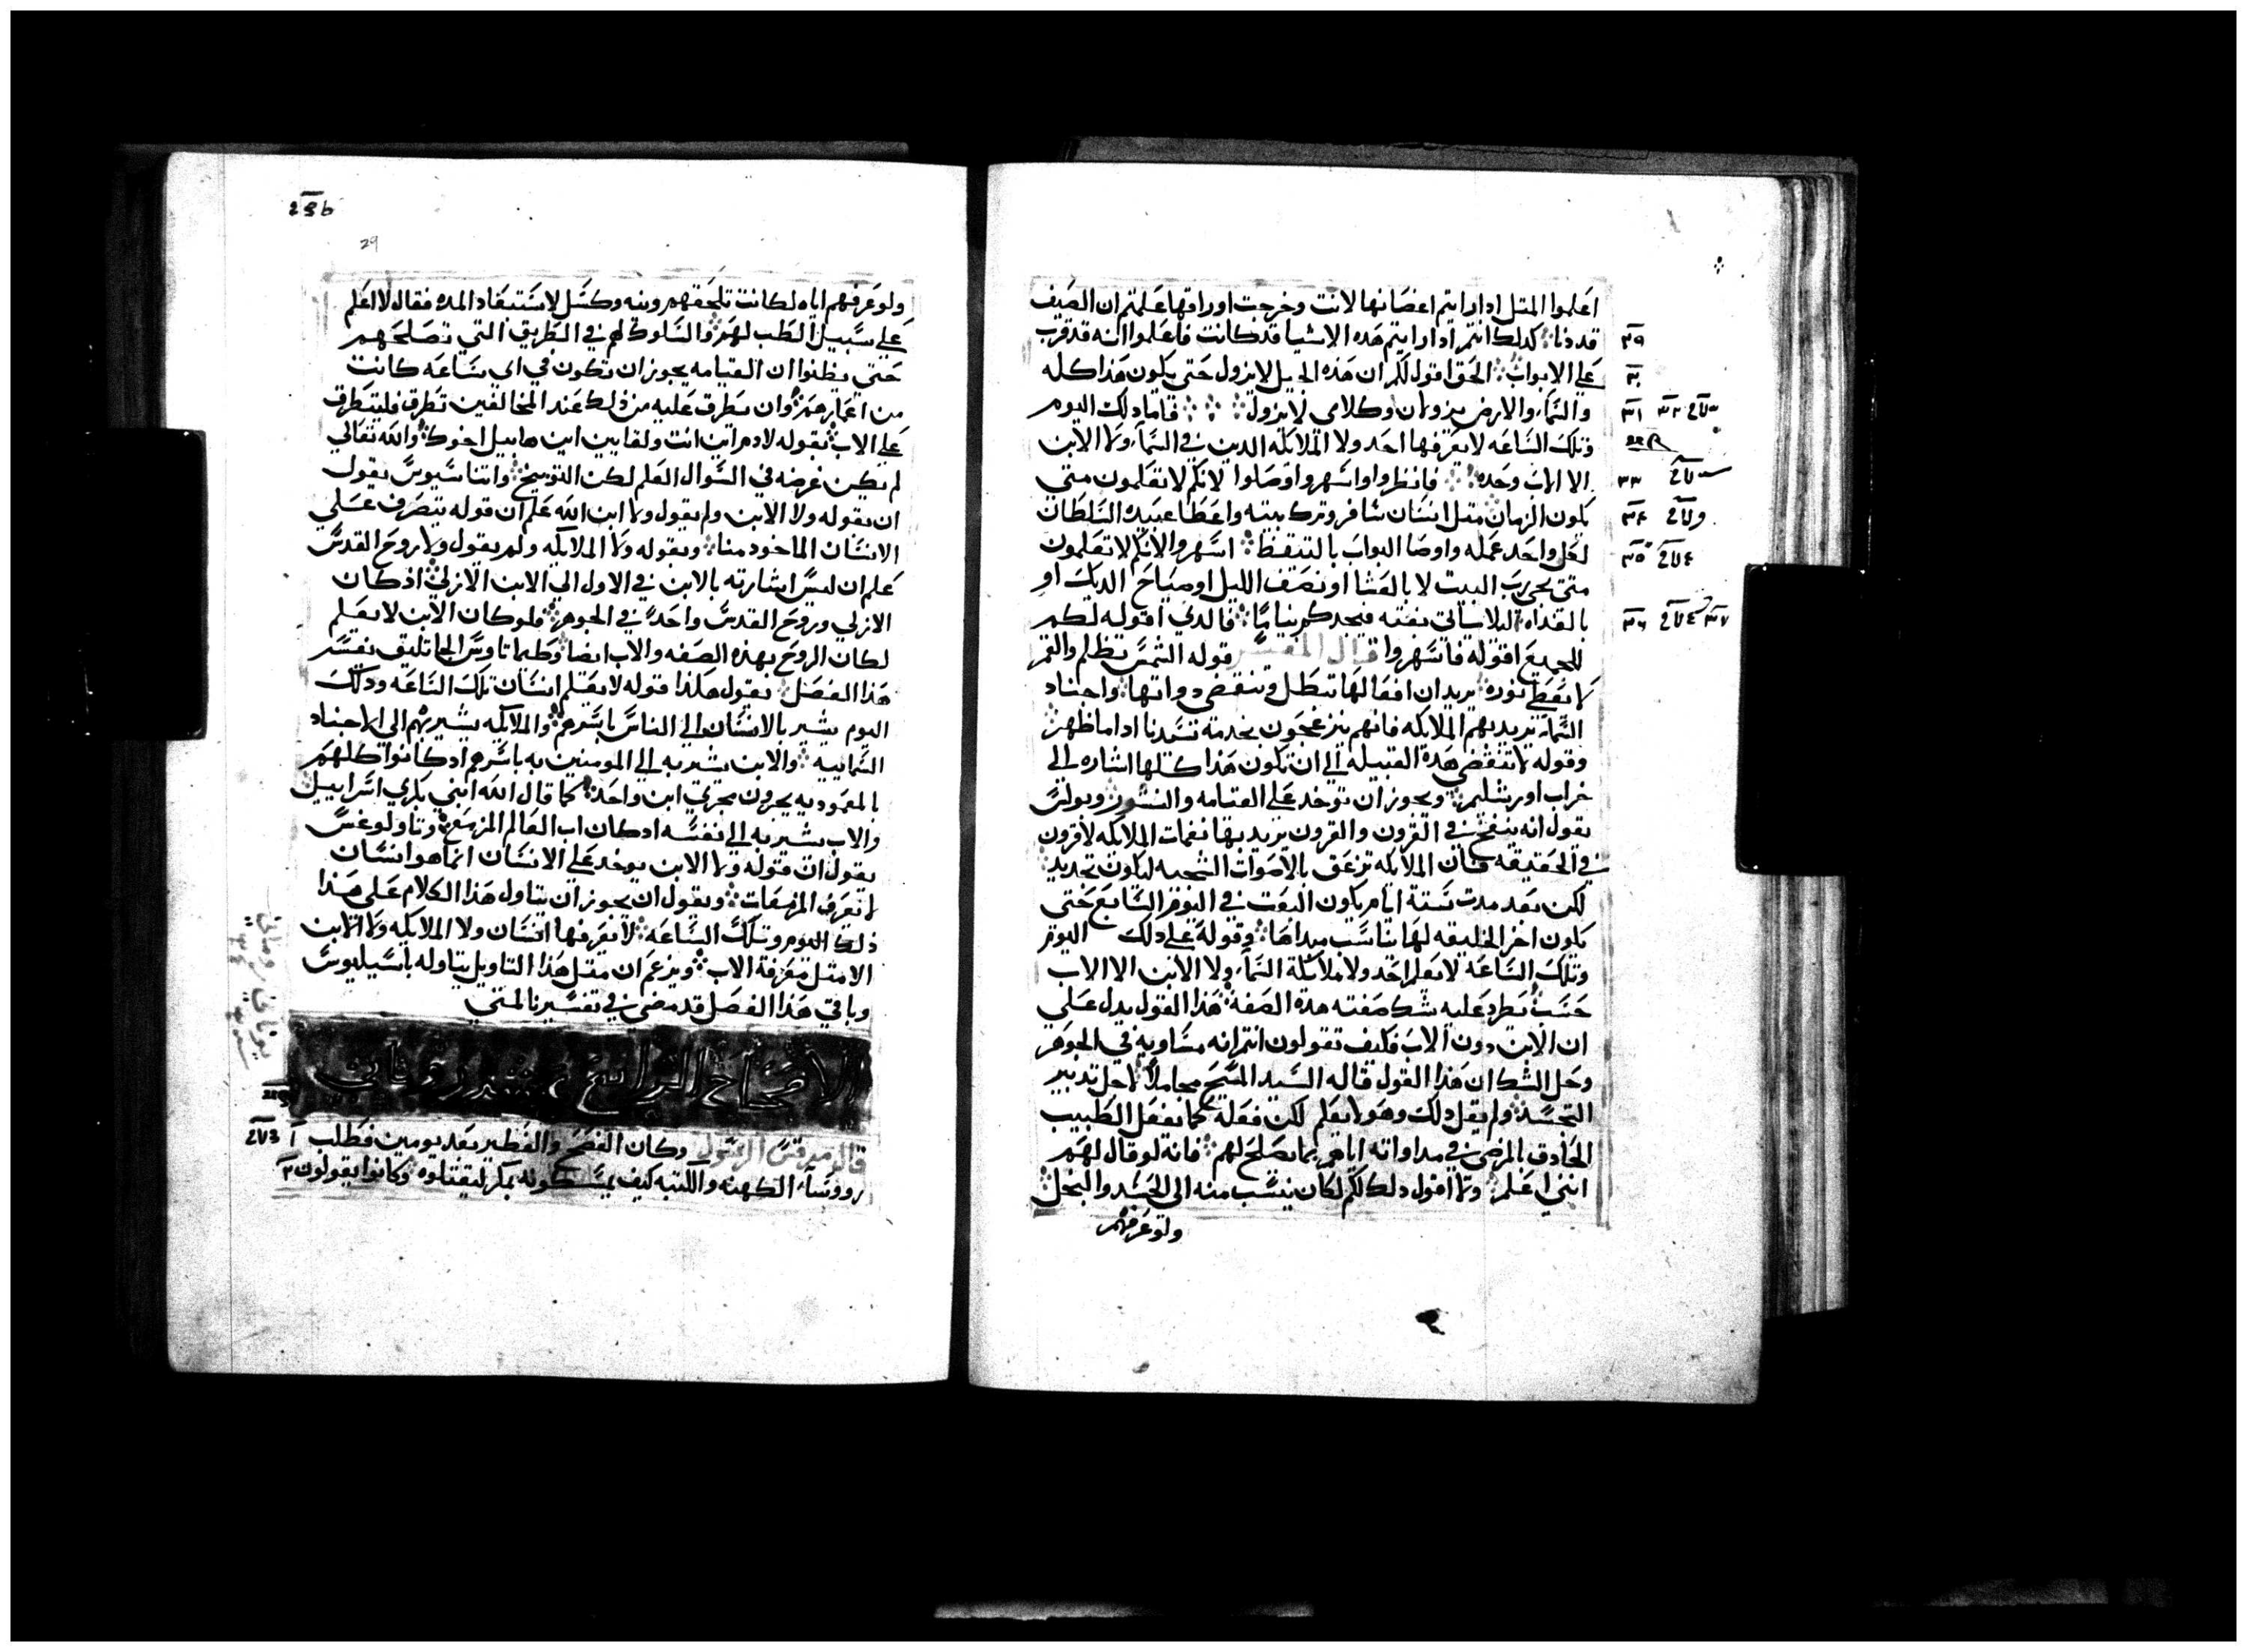 اعلموا المتل ادا رايتم اغصانها لانت وخرجت اوراقها علمتم ان الصيف
قد دنا كدلك انتم ادا رايتم هده الاشيا قد كانت فاعلموا انه قد قرب
علي الابواب الحق اقول لكم ان هذه الجيل لا يزول حتي يكون هذا كله
والسماء والارض يزولان وكلامي لا يزول فاما دلك اليوم
وتلك الساعه لا يعرفها احد ولا الملايكه الدين في السماء ولا الابن
الا الاب وحده فانظروا واسهروا وصلوا لانكم لا تعلمون متي
يكون الزمان متل انسان سافر وترك بيته واعطا عبيده السلطان
لكل واحد عمله واوصا البواب بالتيقظ اسهروا لانكم لا تعلمون
متي يجي رب البيت لا بالعشا او نصف الليل او صياح الديك او
بالغداه ليلا ياتي بغته فيجدكم نياما فالدي اقوله لكم
للجميع اقوله فاسهروا قال المفسر قوله الشمس تظلم والقمر
لا يعطي نوره يريد ان افعالها تبطل وتنقضي دواتها واجناد
السماء يريد بهم الملايكه فانهم ينزعجون بخدمة سيدنا ادا ما ظهر
وقوله لا تنقضي هذه القبيله الي ان تكون هذا كلها اشاره الي
خراب اورشليم ويجوز ان توخد علي القيامه والنشور وبولس
يقول انه ينفخ في القرون والقرون يريد بها نغمات الملايكه لا قرون
في الحقيقه فان الملايكه تزعق بالاصوات الشجيه ليكون تجديد
لكن بعد مدت ستة ايام يكون البعت في اليوم السابع حتي
يكون اخر الخليقه لها يناسب مبداها وقوله علي دلك اليوم
وتلك الساعه لا يعلم احد ولا ملايكة السماء ولا الابن الا الاب
حسب يطرد عليه شك صفته هده الصفه هذا القول يدل علي
ان الابن دون الاب فكيف تقولون انتم انه مساويه في الجوهر
وحل الشك ان هذا القول قاله السيد المسيح محاملا لاجل تدبير
التجسد ولم يقل دلك وهو لا يعلم لكن فعله كما يفعل الطبيب
الحادق المرضي في مداواته اياهم بما يصلح لهم فانه لو قال لهم
انني اعلم ولا اقول دلك لكم لكان ينسب منه الي الحسد والبخل
ولو عرفهم
29b
29
ولو عرفهم اياه لكانت تلحقهم ونيه وكسل لاستبعاد المده فقال لا اعلم
علي سبيل الطب لهم والسلوك بهم في الطريق التي تصلحهم
حتي يظنوا ان القيامه يجوز ان تكون في اي ساعه كانت
من اعمارهم وان يطرق عليه من ذلك عند المخالفين تطرق فليتطرق
علي الاب بقوله لادم اين انت ولقايين اين هابيل اخوك والله تعالي
لم يكن غرضه في السوال العلم لكن التوبيخ واتناسيوس يقول
ان بقوله ولا الابن ولم يقول ولا ابن الله علم ان قوله يتصرف علي
الانسان الماخود منا وبقوله ولا الملايكه ولم يقول ولا روح القدس
علم ان ليس اشارته بالابن في الاول الي الابن الازلي اذ كان
الازلي وروح القدس واحد في الجوهر فلو كان الابن لا يعلم
لكان الروح بهذه الصفه والاب ايضا وطيماتاوس الجاتليق يفسر
هذا الفصل يقول هكذا قوله لا يعلم انسان تلك الساعه ودلك
اليوم يشير بالانسان الي الناس باسرهم والملايكه يشير بهم الي الاجناد
السماييه والابن يشير به الي المومنين به باسرهم اد كانوا كلهم
بالمعموديه يجرون مجري ابن واحد كما قال الله ابني بكري اسراييل
والاب يشير به الي نفسه اد كان اب العالم المزمع وتاولوغس
يقول ان قوله ولا الابن يوخد علي الانسان انما هو انسان
لا تعرف المزمعات ويقول ان يجوز ان يتاول هذا الكلام علي هذا
ذلك اليوم وتلك الساعه لا يعرفها انسان ولا الملايكه ولا الابن
الا متل معرفة الاب ويزعم ان متل هذا التاويل يتاوله باسيليوس
وباقي هذا الفصل قد مضي في تفسيرنا لمتي
الاصحاح الرابع عشر
قال مرقس الرسول وكان الفصح والفطير بعد يومين فطلب
رووساء الكهنه والكتبه كيف يمسكونه بمكر ليقتلوه وكانوا يقولون